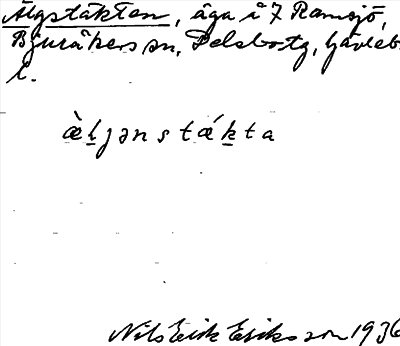 Älgstäkten, äga å 7 Ramsjö,
Bjuråkers sn, Delsbo tg, Gävleb.
l.
æ̀l̲jənstǽk̲ta
Nils Erik Eriksson 1936